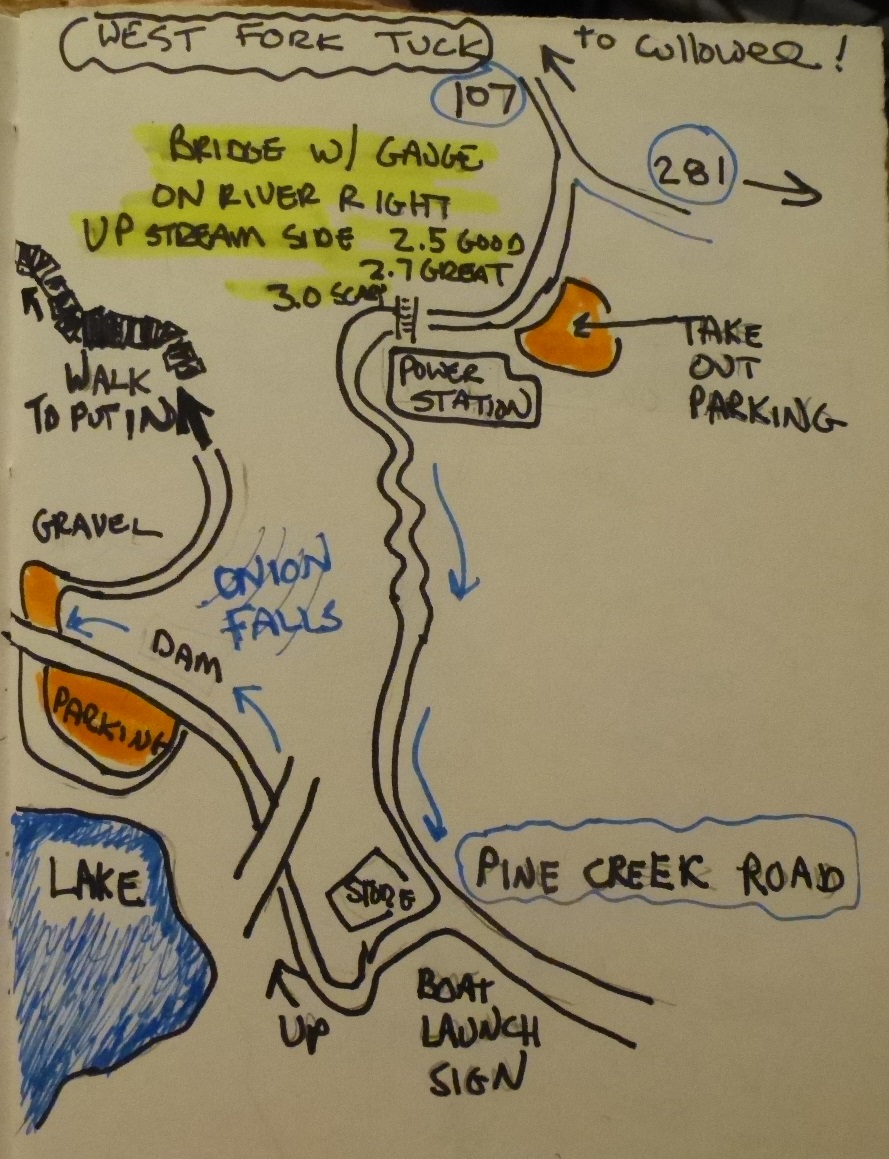 WEST FORK TUCK
to Cullowee!
107
281
BRIDGE W/ GAUGE
ON RIVER RIGHT
UP STREAM SIDE 2.5 GOOD
2.7 GREAT
3.0 SCARY
TAKE
OUT
PARKING
POWER
STATION
WALK
TO PUT IN
GRAVEL
ONION
FALLS
DAM
PARKING
LAKE
STORE
PINE CREEK ROAD
UP
BOAT
LAUNCH
SIGN